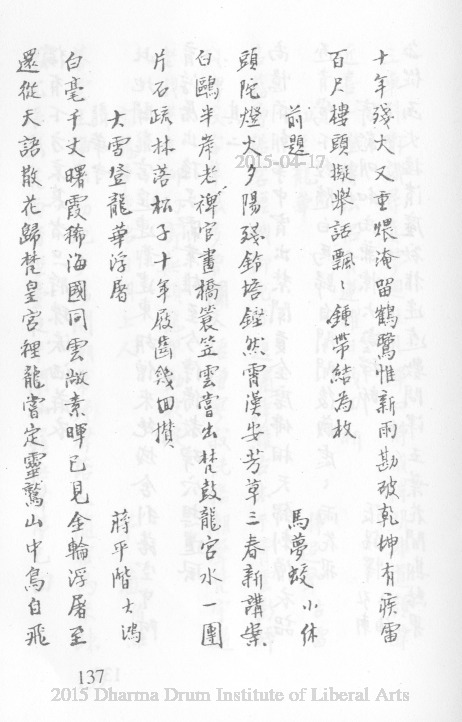 十年殘火又重喂淹留鶴鷺惟新雨勘破乾坤有疾雷
百尺樓頭擬舉話飄〻鍾帶結為枚
前題 馬夢蛟小休
頭陀燈火夕陽殘鈴塔鏗然霄漢安芳草三春新講案
白鷗半岸老禪官畫橋蓑笠雲當出梵鼓龍宮水一團
片石疏林落松子十年屐齒幾回攢
大雪登龍華浮屠 蔣平階大鴻
白毫千丈曙霞稀海國同雲歛素暉已見金輪浮屠至
還從天語散花歸梵皇宮裡龍嘗定靈鷲山中鳥自飛
137
2015-04-17
2015 Dharma Drum Institute of Liberal Arts